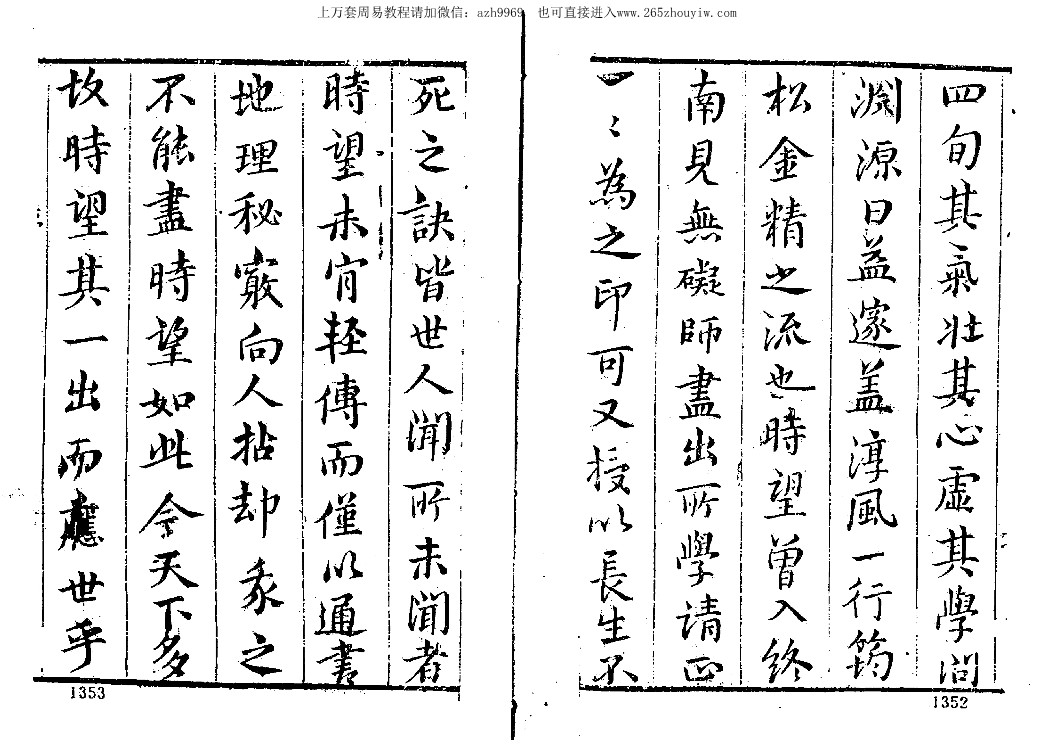 上万套周易教程请加微信：azh9969 也可直接进入www.265zhouyiw.com
四旬其氣壯其心虛其學問
淵源日益邃盖淳風一行筠
松金精之流也時望曾入終
南見無礙師盡出所學请正
一〻為之印可又授以長生不
1352
死之訣皆世人聞所未聞者
時望未肯轻傳而僅以通書
地理秘竅向人拈却彖之
不能盡時望如此今天下多
故時望其一出而應世乎
1353